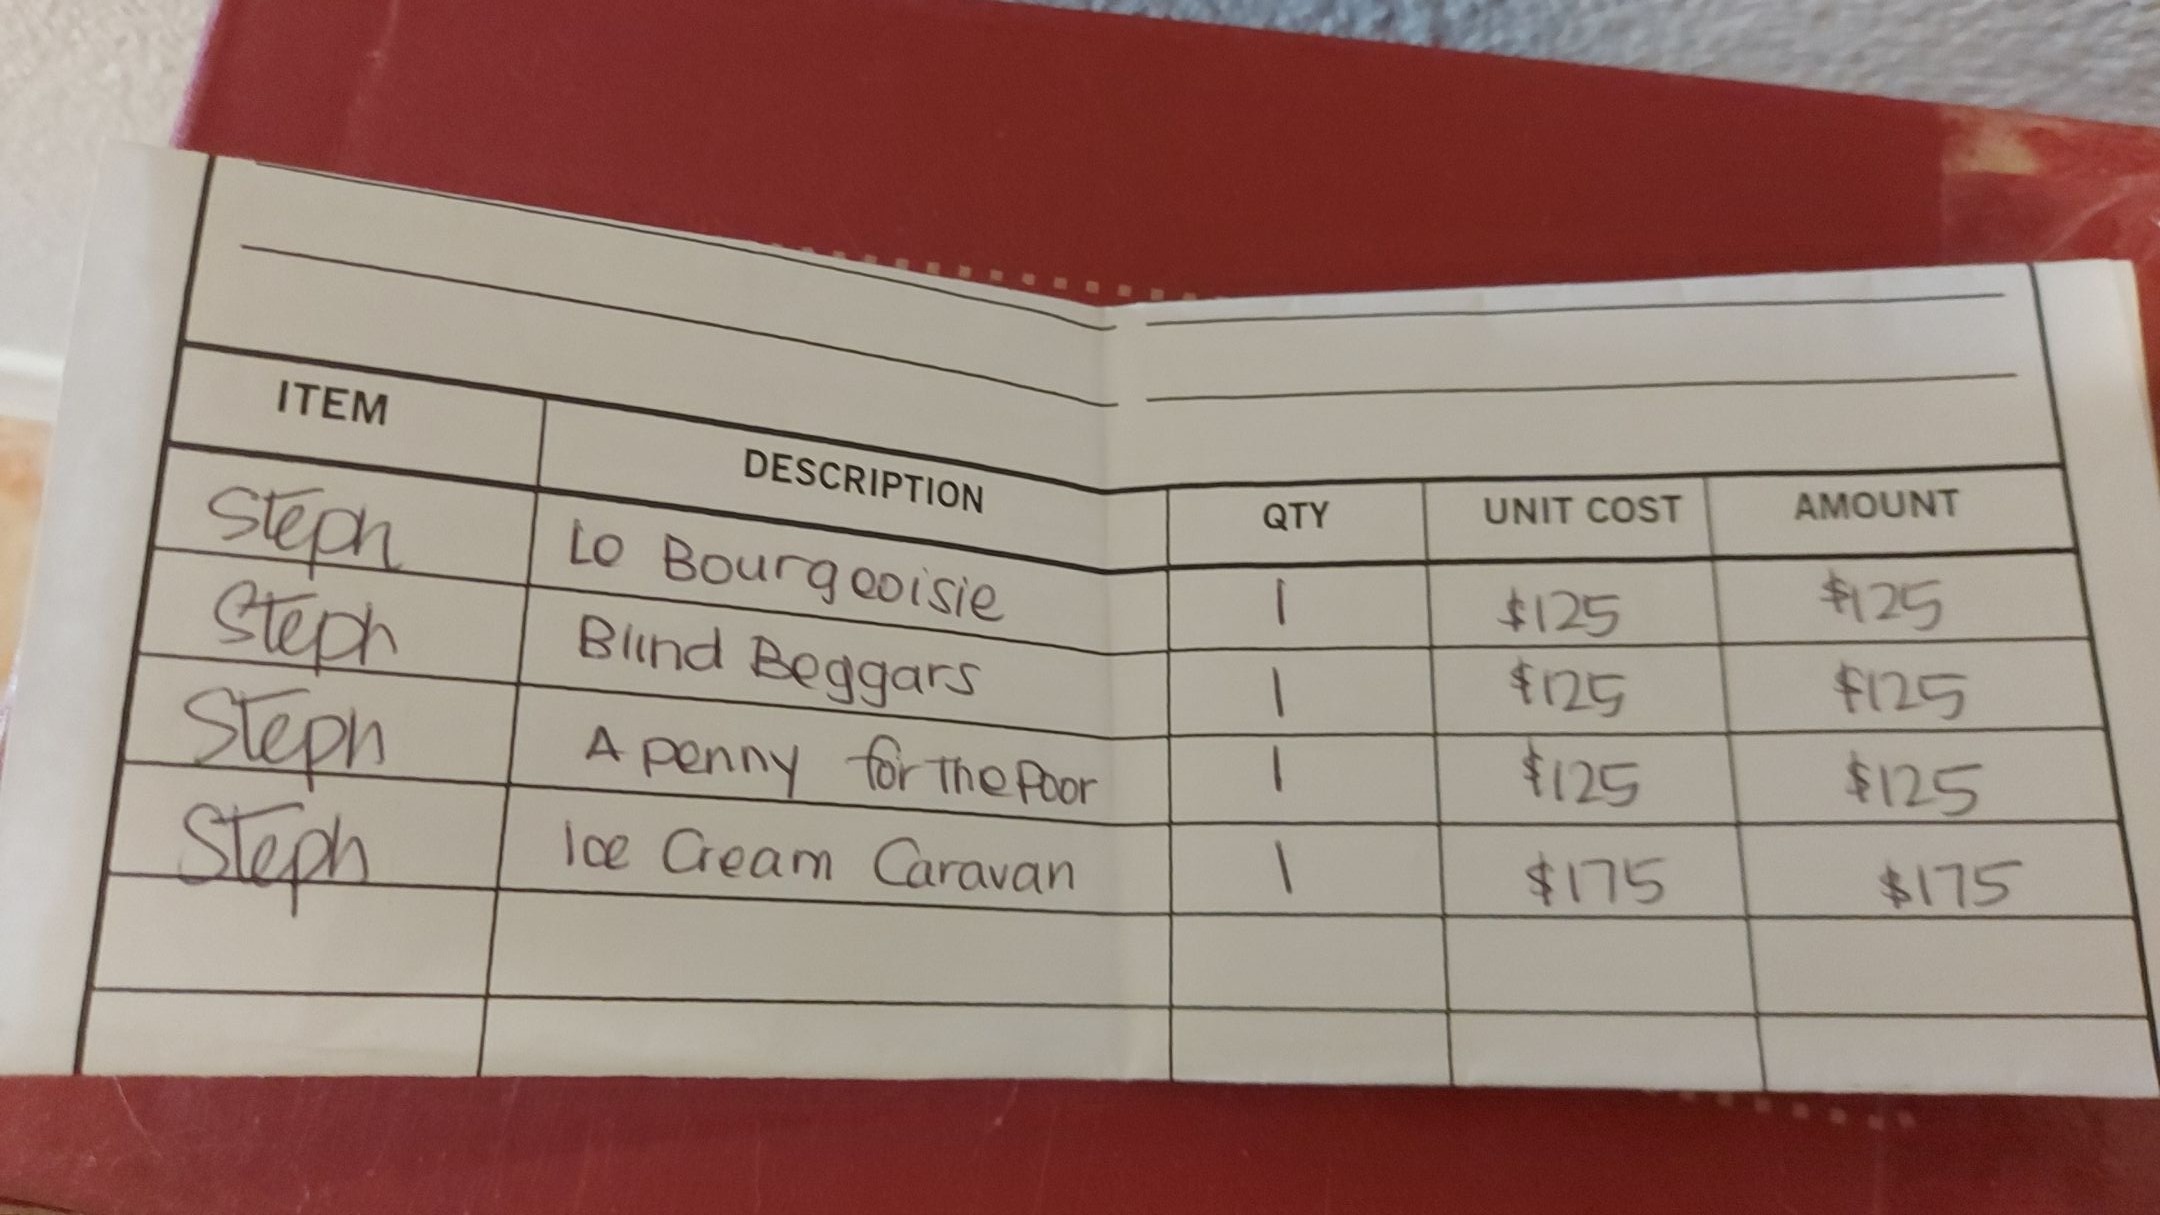 ITEM DESCRIPTION QTY UNIT COST AMOUNT
Steph Lo Bourgeoisie 1 $125 $125
Steph Blind Beggars 1 $125 $125
Steph A penny for the Poor 1 $125 $125
Steph Ice Cream Caravan 1 $175 $175